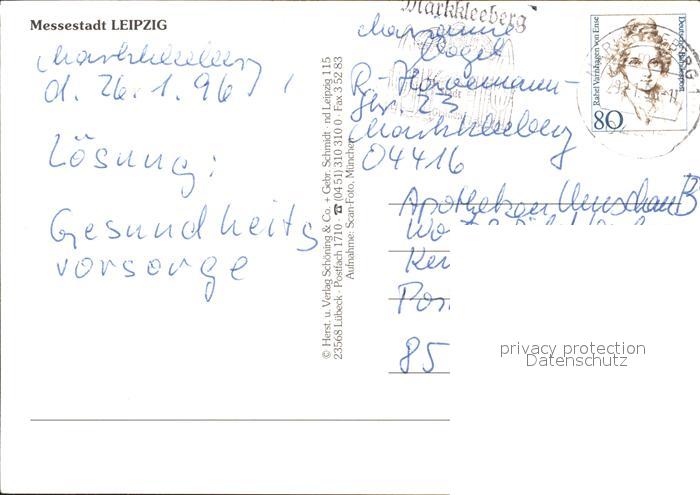 Messestadt LEIPZIG
Markkleeberg
d. 26.1.96
Lösung:
Gesundheits
vorsorge
© Herst. u. Verlag Schöning & Co. + Gebr. Schmidt · nd Leipzig 115
23568 Lübeck · Postfach 1710 · ☎ (04 51) 310 310 0 · Fax 3 52 83
Aufnahme: Scan-Foto, München
Markkleeberg
Marianne
Vogel
Str. 23
Markkleeberg
04416
Rahel Varnhagen von Ense
Deutsche Bundespost
80
Apotheken Umschau B
Wo
Ker
Pos
85
privacy protection
Datenschutz